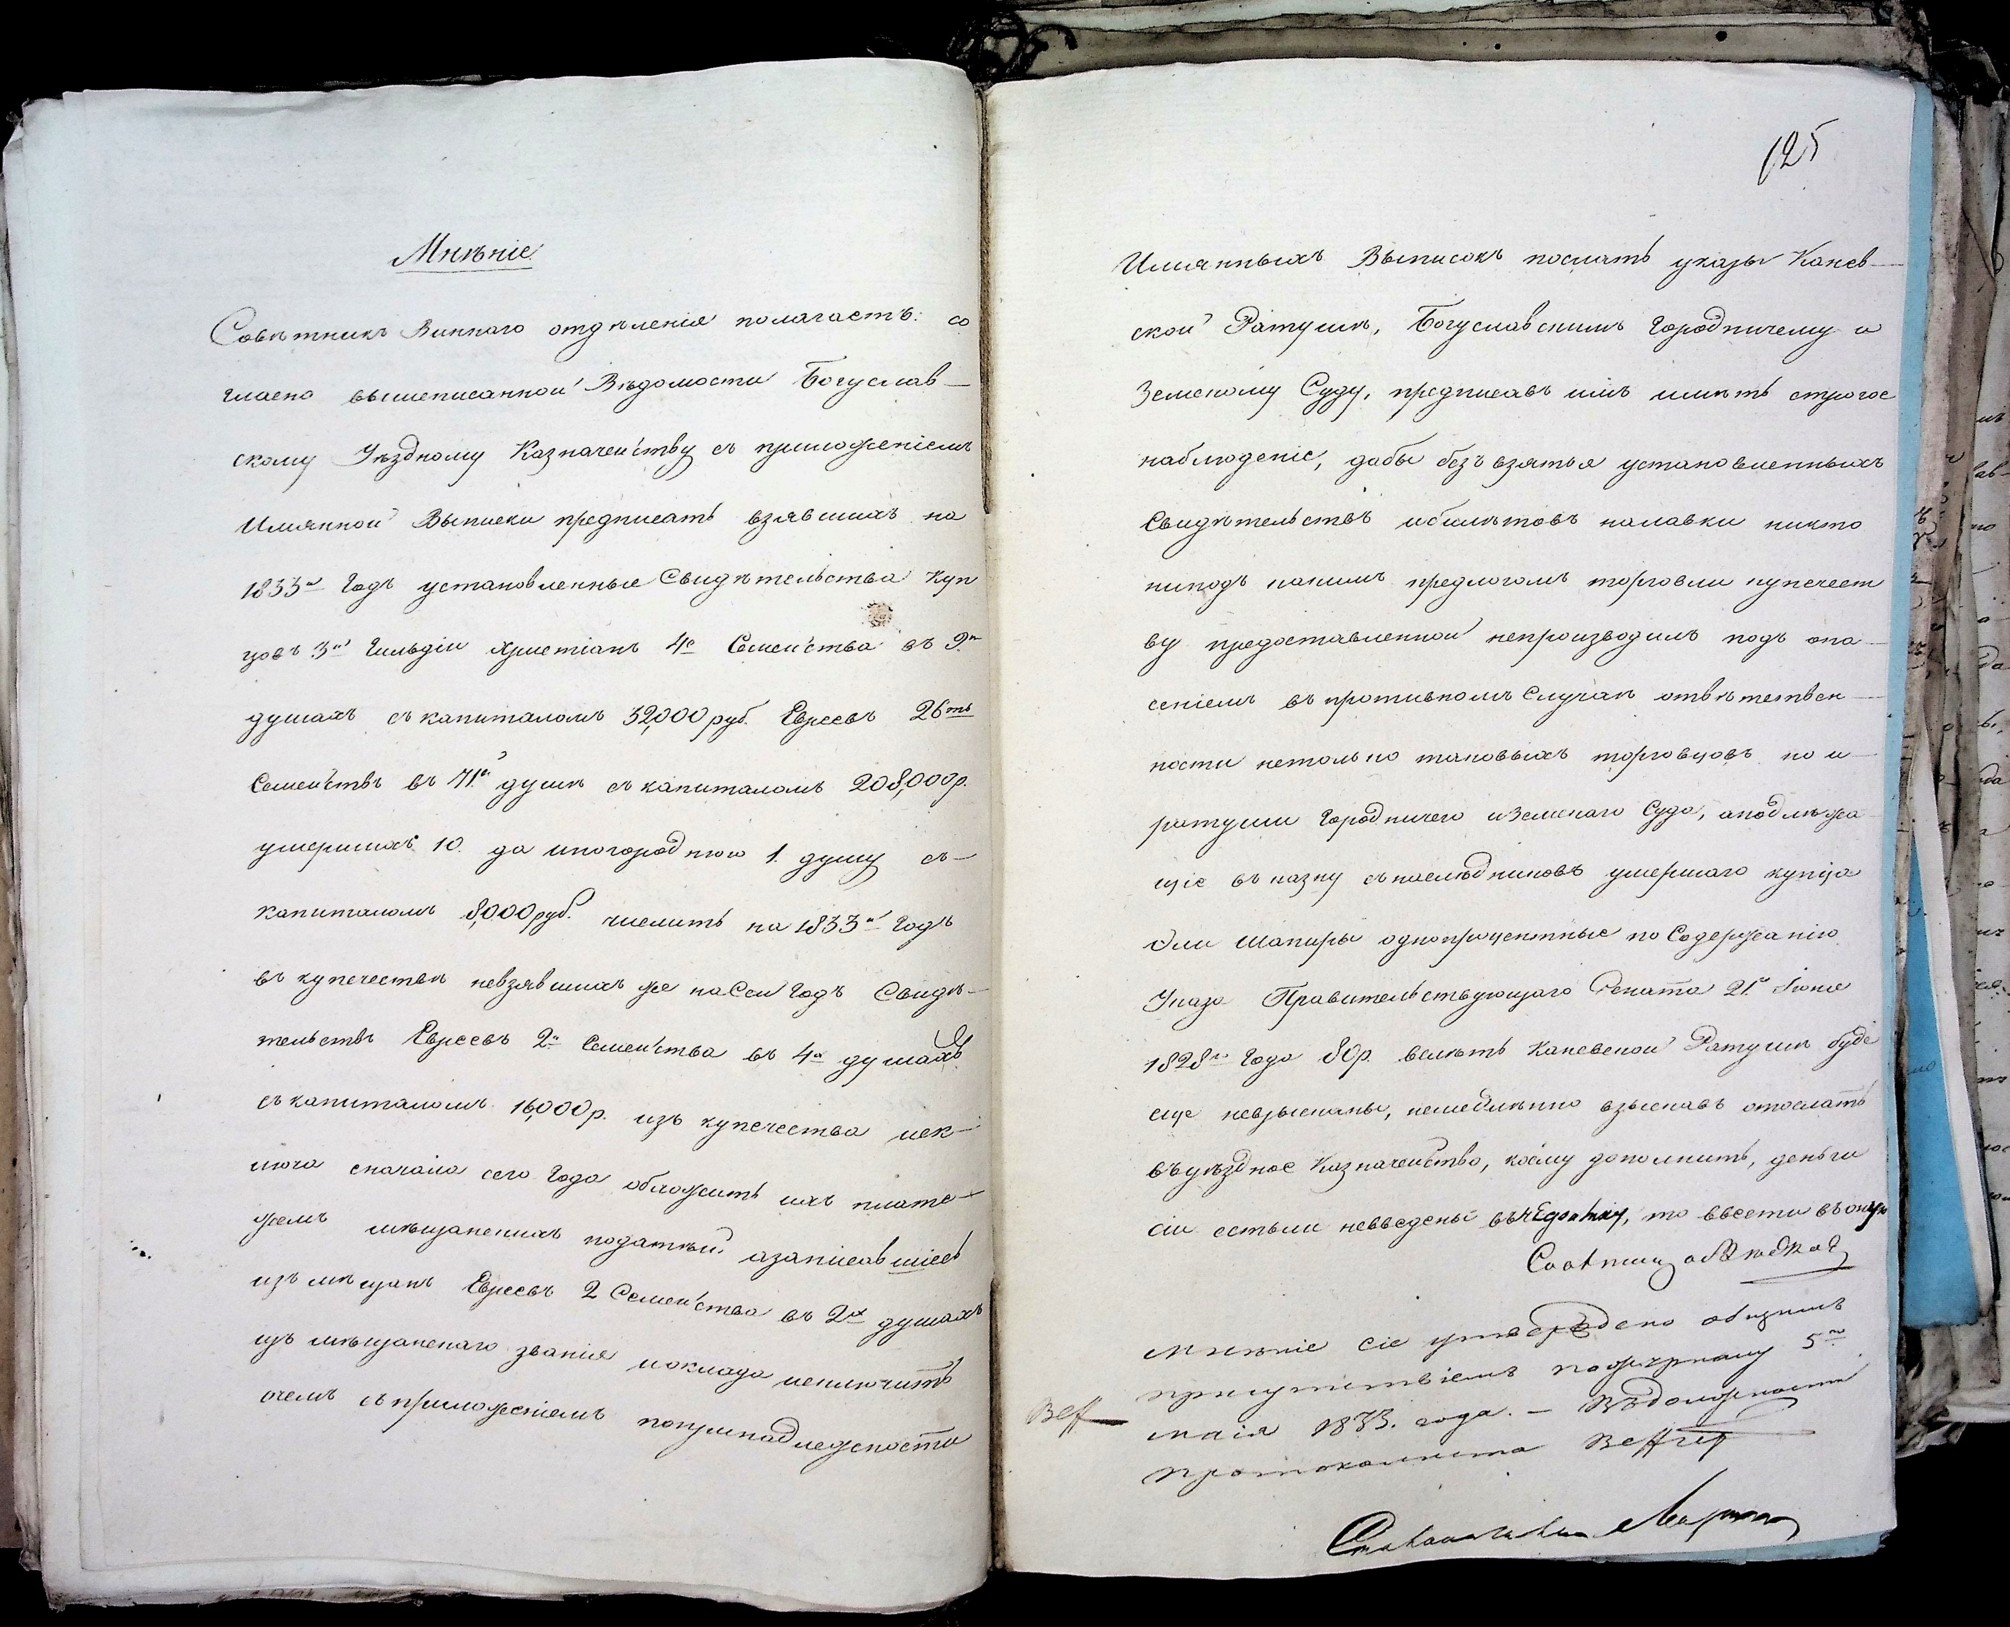 Мнѣніе
Совѣтникъ Виннаго отдѣленія полагаетъ: со
гласно вышеписанной Вѣдомости Богуслав-
скому Уѣздному Казначейству съ приложеніемъ
Имянной Выписки предписать взявшихъ на
1833й Годъ установленные Свидѣтельства Куп
цовъ 3й Гильдіи Христіанъ 4е Семейства въ 9и
душахъ съ капиталомъ 32,000 руб. Евреевъ 26ть
Семействъ въ 71й душѣ съ капиталомъ 208,000 р.
умершихъ 10. да иногороднюю 1. душу съ-
капиталомъ 8,000 руб. числить на 1833й Годъ
въ купечествѣ невзявшихъ же на Сей Годъ Свидѣ-
тельствъ Евреевъ 2а Семейства въ 4х душахъ
съ капиталомъ 16,000 р. изъ купечества иск-
люча сначала сего Года обложить ихъ плате-
жемъ мѣщанскихъ податей азаписавшіесь
изъ мѣщанъ Евреевъ 2 Семейства въ 2х душахъ
изъ мѣщанскаго званія иоклада исключить
очемъ съ приложеніемъ попринадлежности
125
Имянныхъ Выписокъ послать указы Канев-
ской Ратушѣ, Богуславскимъ Городничему и
Земскому Суду, предписавъ имъ имѣть строгое
наблюденіе, дабы безъ взятья установленныхъ
Свидѣтельствъ ибилѣтовъ налавки никто
ниподъ какимъ предлогомъ торговли купечест
ву предоставленной непроизводилъ подъ опа-
сеніемъ въ противномъ Случаѣ отвѣтствен-
ности нетолько таковыхъ торговцовъ но и-
ратуши Городничего иЗемскаго Суда, аподлѣжа
щіе въ казну съ наслѣдниковъ умершаго купца
Эли Шапиры однопроцентные по Содержанію
Указа Правительствующаго Сената 21го Іюня
1828го Года 80 р. велѣть Каневской Ратушѣ буде
еще невзысканы, немедлѣнно взыскавъ отослать
въ уѣздное Казначейство, коему дополнить, деньги
сіи естьли невведены въ недоимку, то ввести въ оную
Совѣтникъ
Мнѣніе сіе утверждено общимъ
присутствіемъ по журналу 5го
маія 1833. года. - Въ должности
протоколиста